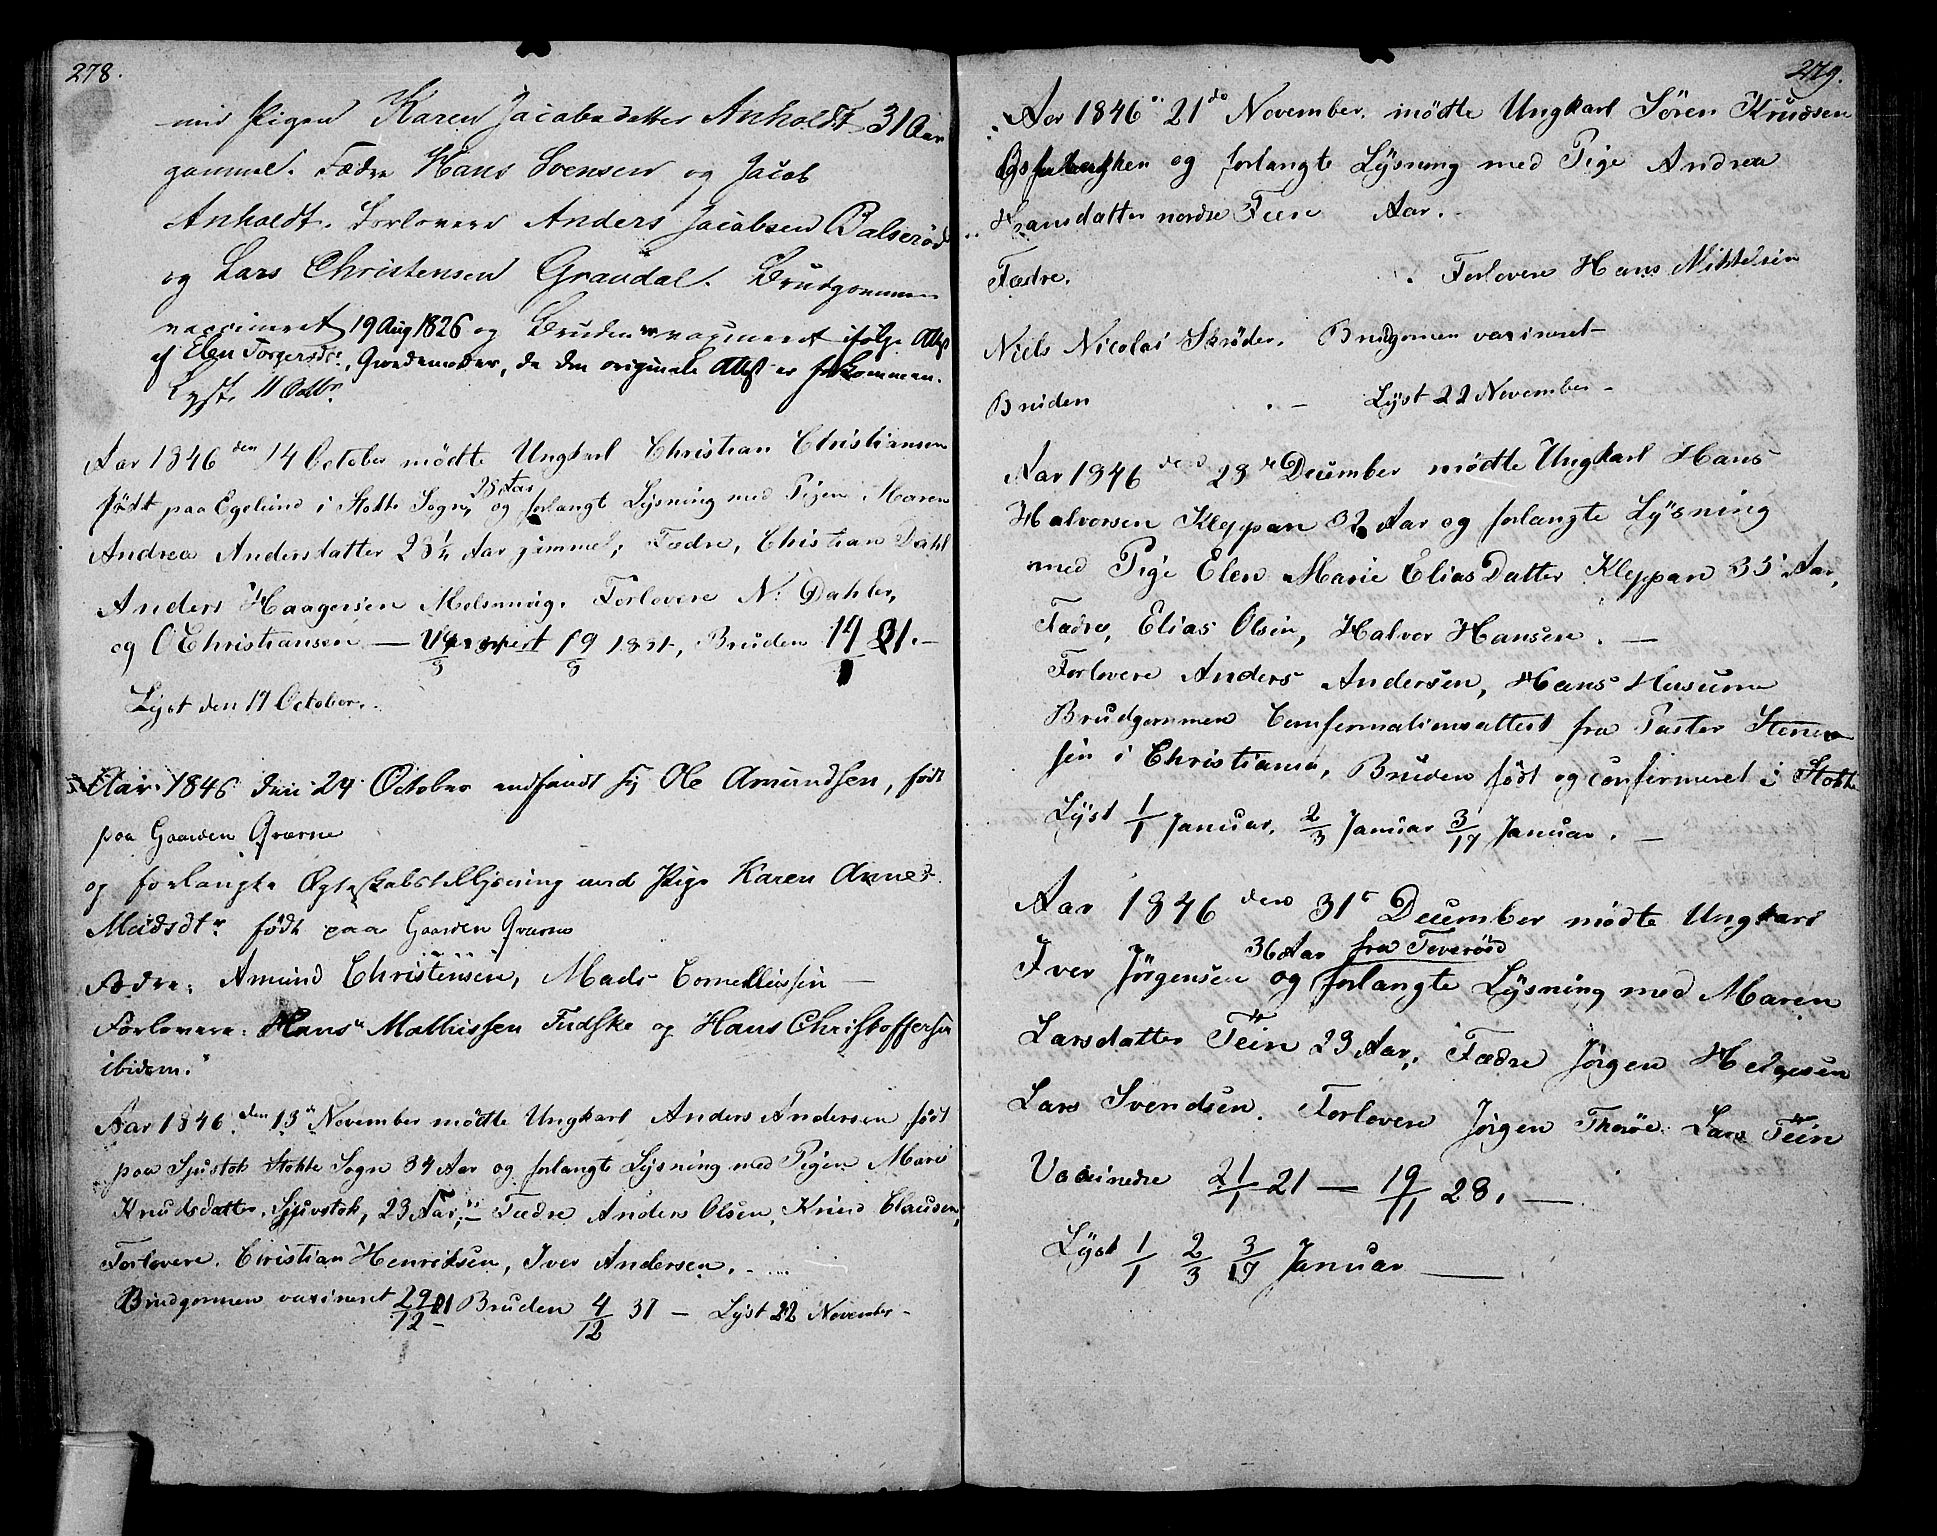 278.
med Pigen Karen Jacobsdatter Anholdt 31 Aar
gammel. Fædre Hans Svensen og Jacob
Anholdt. Forlovere Anders Jacobsen Balserød
og Lars Christensen Graudal. Brudgommen
vaccineret 19 Aug 1826 og Bruden vaccineret ifølge Attest
af Elen Torgersdr., Gjordemoder, da den originale Attest er forkommen.
Lyst. 11 Octbr.
Aar 1846 den 14 October mødte Ungkarl Christian Christiansen
født paa Egelund i Stokke Sogn, 28 Aar og forlangt Lysning med Pigen Maren
Andrea Andersdatter 23 1/4 Aar gammel; Fædre, Christian Dahl
Anders Haagensen Melsomvig. Forlovere N. Dahler,
og C Christiansen — 19/9 1831, Bruden 14
Lyst den 17 October.
Aar 1846 den 24 October indfandt sig Ole Amundsen, født
paa Gaarden Qværne
og forlangte Ægteskabstillysning med Pige Karen Anne
Madsdtr født paa Gaarden Qværne
Fædre: Amund Christensen, Mads Corneliussen —
Forlovere: Hans Mathissen Fudske og Hans Christoffersen
ibidem.
Aar 1846 den 13 November mødte Ungkarl Anders Andersen født
paa Sjustok Stokke Sogn 34 Aar og forlangte Lysning med Pigen Maria
Knudsdatter, Sjuvstok, 23 Aar; — Fædre Anders Olsen, Knud Clausen,
Forlovere. Christian Henriksen, Iver Andersen.
Brudgommen vaxineret 29/12 21 Bruden 4/12 37 — Lyst 22 November —
279.
Aar 1846 21de November. mødte Ungkarl Søren Knudsen
og forlangte Lysning med Pige Andrea
Hansdatter nordre Feen Aar.
Fædre. Forlovere Hans Mikkelsen
Niels Nicolai Skrøder. Brudgomen vaxineret
Bruden — Lyst 22 November —
Aar 1846 den 28 December mødte Ungkarl Hans
Halvorsen Kleppan 32 Aar og forlangte Lysning
med Pige Elen Marie Elias Datter Kleppan 35 Aar,
Fædre, Elias Olsen, Halvor Hansen. —
Forlovere Anders Andersen, Hans Husum
Brudgommen Comfermationsattest fra Paster Stener
sen i Christiania, Bruden født og confirmeret i Stokke
Lyst 1/1 Januar, 2/3 Januar 3/17 Januar. —
Aar 1846 den 31t December mødte Ungkarl
36 Aar fra Toverød
Iver Jørgensen og forlangte Lysning med Maren
Larsdatter Fein 23 Aar, Fædre Jørgen Helgesen
Lars Svendsen. Forlovere Jørgen Thorøe Lars Fein
Vaxinedre 21/1 21 — 19/11 28. —
Lyst 1/1 2/3 3/17 Januar —